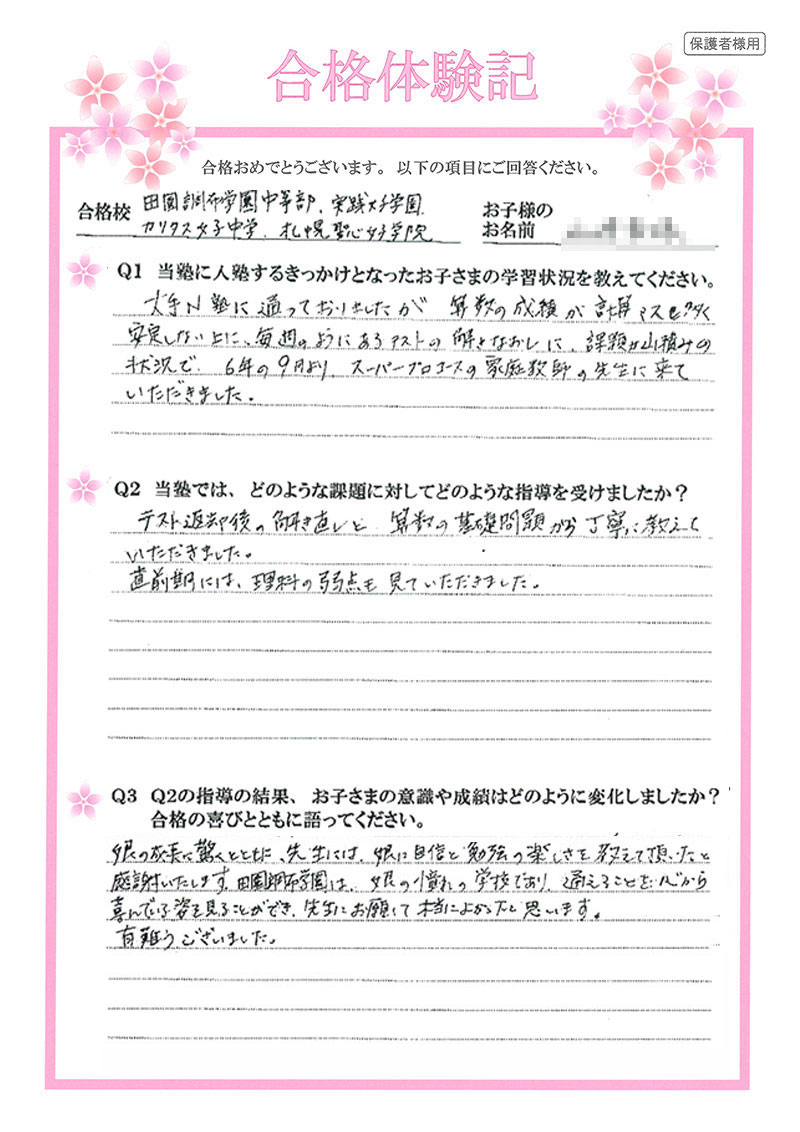 保護者様用
合格体験記
合格おめでとうございます。以下の項目にご回答ください。
合格校 田園調布学園中等部、実践女子学園、
カリタス女子中学、札幌聖心女子学院
お子様の
お名前
Q1 当塾に入塾するきっかけとなったお子さまの学習状況を教えてください。
大手N塾に通っておりましたが 算数の成績が計算ミスも多く
安定しない上に、毎週のようにあるテストの解きなおしに、課題が山積みの
状況で、6年の9月より、スーパープロコースの家庭教師の先生に来て
いただきました。
Q2 当塾では、どのような課題に対してどのような指導を受けましたか？
テスト返却後の解き直しと、算数の基礎問題から丁寧に教えて
いただきました。
直前期には、理科の弱点も見ていただきました。
Q3 Q2の指導の結果、お子さまの意識や成績はどのように変化しましたか？
合格の喜びとともに語ってください。
娘の成長に驚くとともに、先生には、娘に自信と勉強の楽しさを教えて頂いたと
感謝いたします。田園調布学園は、娘の憧れの学校であり、通えることを心から
喜んでいる姿を見ることができ、先生にお願いして本当によかったと思います。
有難うございました。